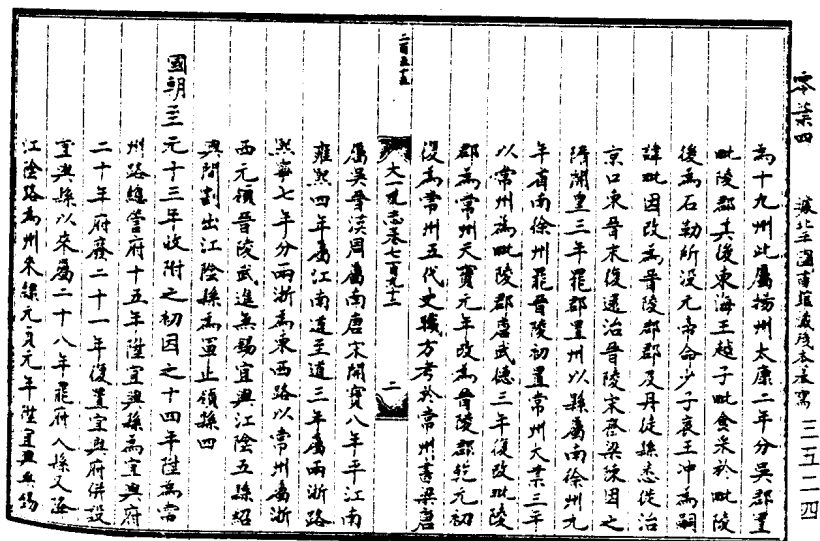 零葉四
據北平圖書館藏殘本卷寫
三五二四
為十九州此屬揚州太康二年分吳郡置
毗陵郡其後東海王越子毗食采於毗陵
後為石勒所没元帝命少子哀王冲為嗣
諱毗因改為晉陵郡郡及丹徒縣悉徙治
京口東晉末復還治晉陵宋齊梁陳因之
隋開皇三年罷郡置州以縣屬南徐州九
年省南徐州罷晉陵初置常州大業三年
以常州為毗陵郡唐武德三年復改毗陵
郡為常州天寶元年改為晉陵郡乾元初
復為常州五代史職方考於常州書梁唐
二百五十五
大一統志卷七百九十二
二
屬吳晉漢周屬南唐宋開寶八年平江南
雍熙四年屬江南道至道三年屬兩浙路
熙寧七年分兩浙為東西路以常州屬浙
西元領晉陵武進無錫宜興江陰五縣紹
興間割出江陰縣為軍止領縣四
國朝至元十三年收附之初因之十四年陞為常
州路總管府十五年陞宜興縣為宜興府
二十年府廢二十一年復置宜興府併設
宜興縣以來屬二十八年罷府入縣又降
江陰路為州來隸元貞元年陞宜興無錫